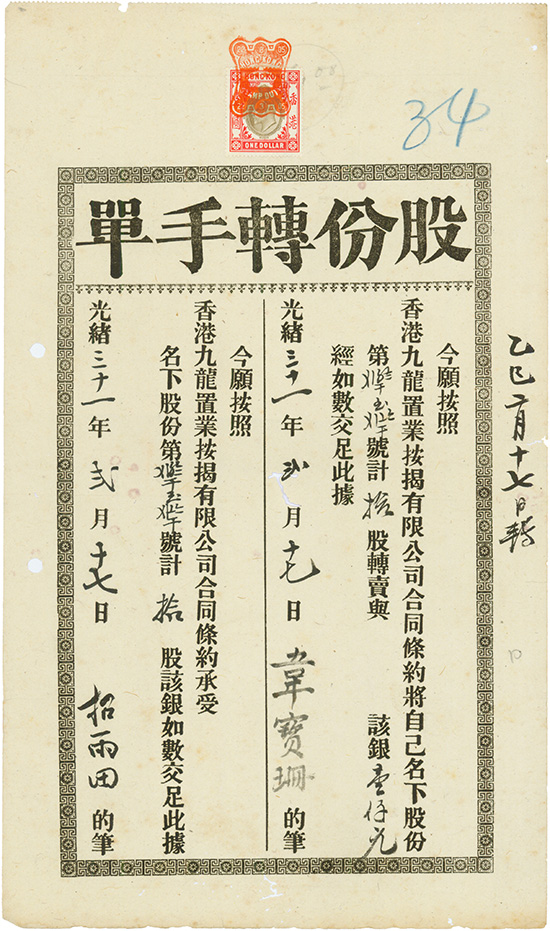 34
HONG KONG
香港
ONE DOLLAR
股份轉手單
乙巳二月十七日轉
今願按照
香港九龍置業按揭有限公司合同條約將自己名下股份
第號計拾股轉賣與 該銀壹仟元
經如數交足此據
光緒三十一年弍月十七日 韋寶珊 的筆
今願按照
香港九龍置業按揭有限公司合同條約承受
名下股份第號計拾股該銀如數交足此據
光緒三十一年弍月十七日 招雨田 的筆